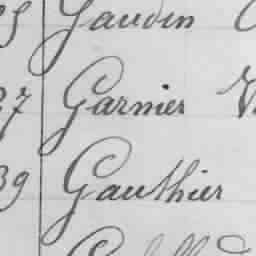 Gaudin
27 Garnier
39 Gauthier